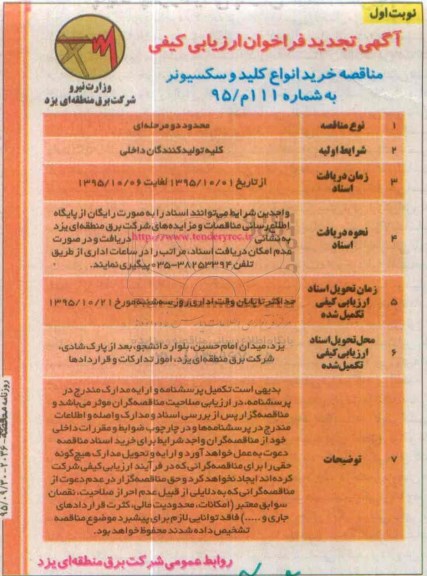 نوبت اول
آگهی تجدید فراخوان ارزیابی کیفی
مناقصه خرید انواع کلید و سکسیونر
به شماره ۱۱۱م/۹۵
وزارت نیرو
شرکت برق منطقه‌ای یزد
۱ نوع مناقصه محدود دو مرحله‌ای
۲ شرایط اولیه کلیه تولیدکنندگان داخلی
۳ زمان دریافت اسناد از تاریخ ۱۳۹۵/۱۰/۰۱ لغایت ۱۳۹۵/۱۰/۰۶
۴ نحوه دریافت اسناد
واجدین شرایط می‌توانند اسناد را به صورت رایگان از پایگاه
اطلاع‌رسانی مناقصات و مزایده‌های شرکت برق منطقه‌ای یزد
به نشانی http://www.tenderyrec.ir دریافت و در صورت
عدم امکان دریافت اسناد، مراتب را در ساعات اداری از طریق
تلفن ۳۸۲۵۳۳۹۴-۰۳۵ پیگیری نمایند.
۵ زمان تحویل اسناد ارزیابی کیفی تکمیل شده
حداکثر تا پایان وقت اداری روز سه‌شنبه مورخ ۱۳۹۵/۱۰/۲۱
۶ محل تحویل اسناد ارزیابی کیفی تکمیل شده
یزد، میدان امام حسین، بلوار دانشجو، بعد از پارک شادی،
شرکت برق منطقه‌ای یزد، امور تدارکات و قراردادها
۷ توضیحات
بدیهی است تکمیل پرسشنامه و ارایه مدارک مندرج در
پرسشنامه، در ارزیابی صلاحیت مناقصه‌گران موثر می‌باشد و
مناقصه‌گزار پس از بررسی اسناد و مدارک واصله و اطلاعات
مندرج در پرسشنامه‌ها و در چارچوب ضوابط و مقررات داخلی
خود از مناقصه‌گران واجد شرایط برای خرید اسناد مناقصه
دعوت به عمل خواهد آورد و ارایه و تحویل مدارک هیچ‌گونه
حقی را برای مناقصه‌گرانی که در فرآیند ارزیابی کیفی شرکت
کرده‌اند ایجاد نخواهد کرد و حق مناقصه‌گزار در عدم دعوت از
مناقصه‌گرانی که به دلایلی از قبیل عدم احراز صلاحیت، نقصان
سوابق معتبر (امکانات، محدودیت مالی، کثرت قراردادهای
جاری و .....) فاقد توانایی لازم برای پیشبرد موضوع مناقصه
تشخیص داده شدند محفوظ خواهد بود.
روابط عمومی شرکت برق منطقه‌ای یزد
۹۵/۰۹/۳۰-۲۰۳۶-
روزنامه مناقصه